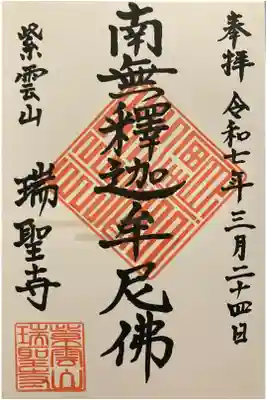 奉拝 令和七年三月二十四日
南無釋迦牟尼佛
紫雲山
瑞聖寺
紫雲山
瑞聖寺